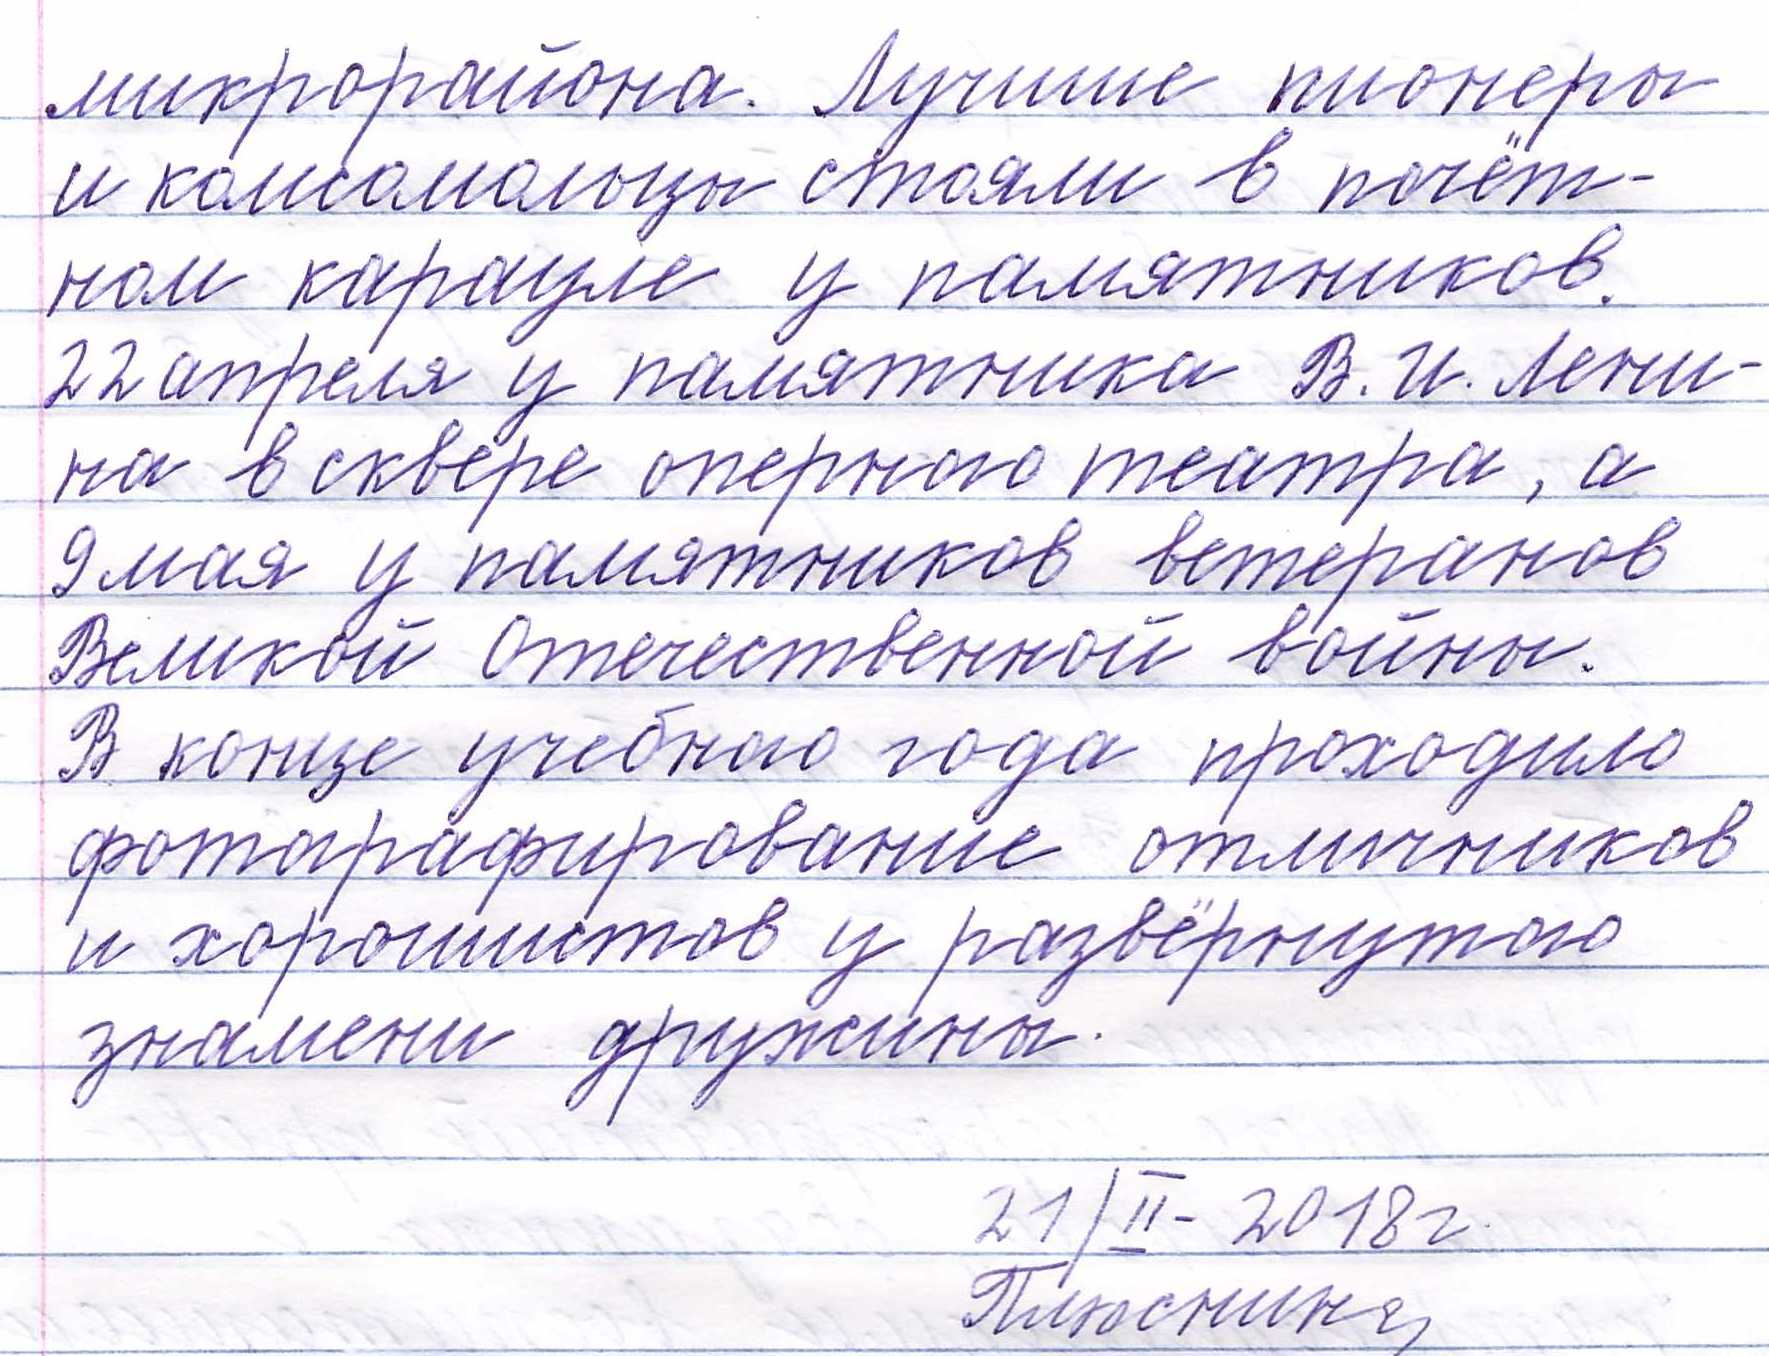 микрорайона. Лучшие пионеры
и комсомольцы стояли в почёт-
ном карауле у памятников.
22 апреля у памятника В. И. Лени-
на в сквере оперного театра, а
9 мая у памятников ветеранов
Великой Отечественной войны.
В конце учебного года проходило
фотографирование отличников
и хорошистов у развёрнутого
знамени дружины.
21/II - 2018 г.
Плюснина